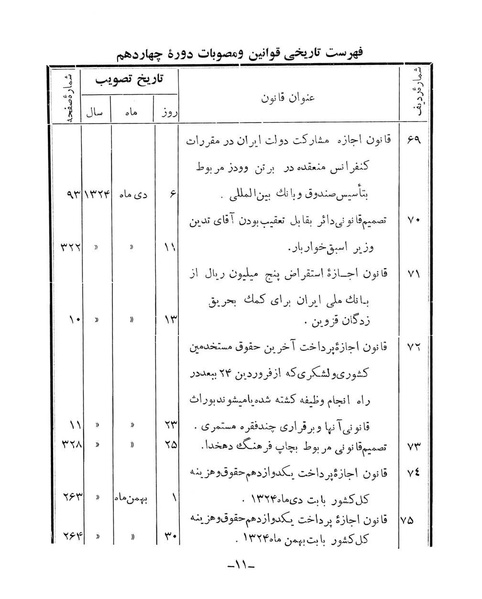 فهرست تاریخی قوانین ومصوبات دورهٔ چهاردهم
شمارهٔ ردیف عنوان قانون تاریخ تصویب شمارهٔ صفحه
روز ماه سال
۶۹ قانون اجازه مشارکت دولت ایران در مقررات
کنفرانس منعقده در برتن وودز مربوط
بتأسیس صندوق و بانك بین‌المللی . ۶ دی ماه ۱۳۲۴ ۹۳
۷۰ تصمیم قانونی دائر بقابل تعقیب بودن آقای تدین
وزیر اسبق خواربار. ۱۱ » » ۳۲۲
۷۱ قانون اجازهٔ استقراض پنج میلیون ریال از
بانك ملی ایران برای کمك بحریق
زدگان قزوین . ۱۳ » » ۱۰
۷۲ قانون اجازهٔ پرداخت آخرین حقوق مستخدمین
کشوری ولشگری که از فروردین ۲۴ ببعد در
راه انجام وظیفه کشته شده یا میشوند بوراث
قانونی آنها و برقراری چند فقره مستمری . ۲۳ » » ۱۱
۷۳ تصمیم قانونی مربوط بچاپ فرهنگ دهخدا. ۲۵ » » ۳۲۸
۷٤ قانون اجازهٔ پرداخت یکدوازدهم حقوق و هزینه
کل کشور بابت دی ماه ۱۳۲٤ . ۱ بهمن ماه » ۲۶۳
۷۵ قانون اجازهٔ پرداخت یکدوازدهم حقوق و هزینه
کل کشور بابت بهمن ماه ۱۳۲٤. ۳۰ » » ۲۶۴
–۱۱–